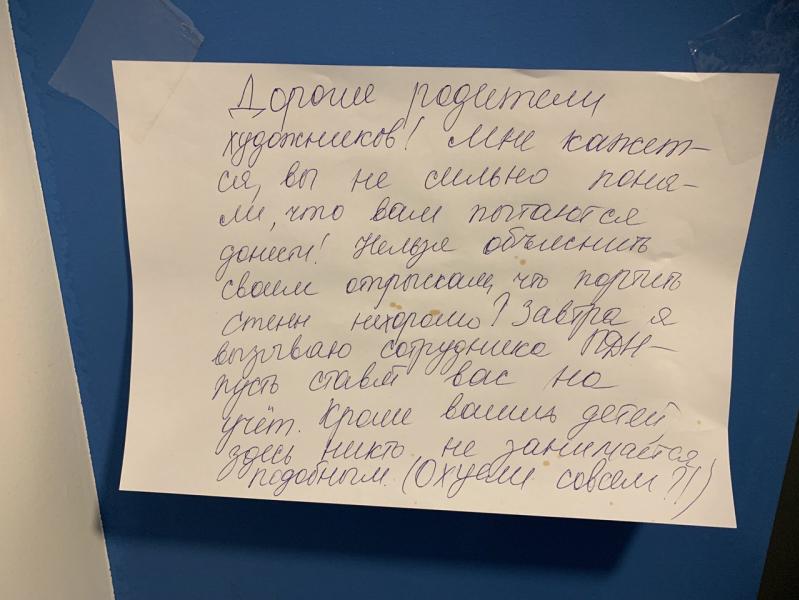 Дорогие родители
художников! Мне кажет-
ся, вы не сильно поня-
ли, что вам пытаются
донести! Нельзя объяснить
своим отпрыскам, что портить
стены нехорошо? Завтра я
вызываю сотрудника ПДН-
пусть ставят вас на
учёт. Кроме ваших детей
здесь никто не занимается
подобным. (Охуели совсем?!)